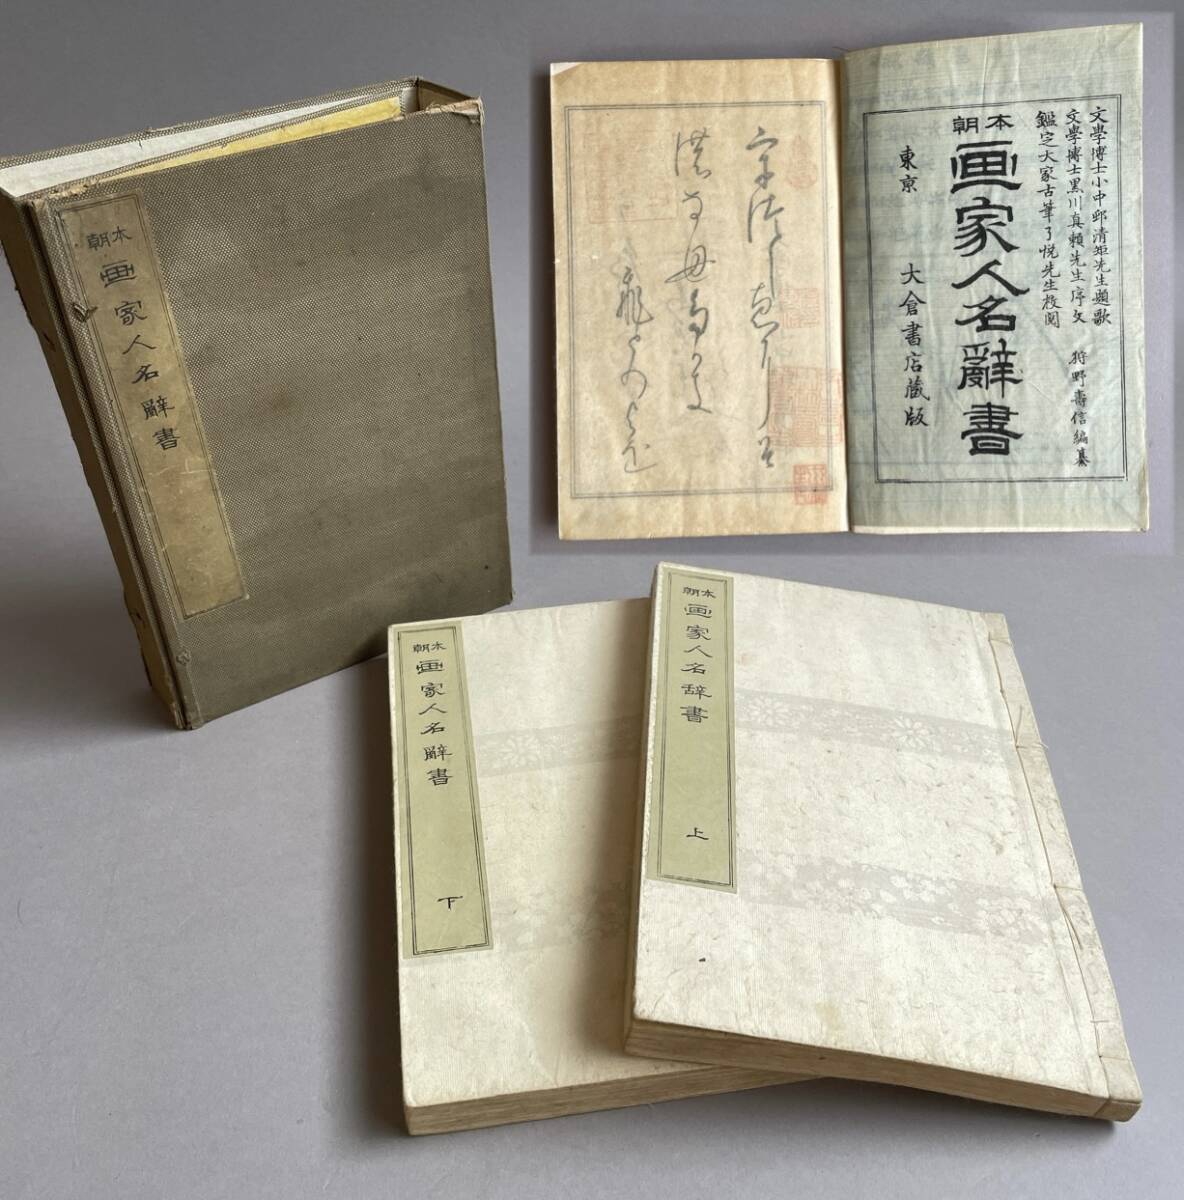 本朝
画家人名辭書
文學博士小中邨清矩先生題歌
文學博士黒川真頼先生序文
鑑定大家古筆了悦先生校閲
狩野壽信編纂
本朝
画家人名辭書
東京 大倉書店蔵版
本朝
画家人名辞書
上
本朝
画家人名辭書
下